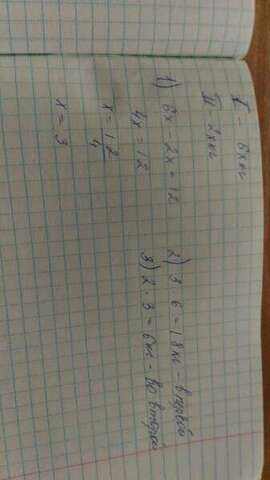 I – 6х кг
II – 2х кг
1) 6х – 2х = 12
4х = 12
х = 12/4
х = 3
2) 3 · 6 = 18 кг – в первой
3) 2 · 3 = 6 кг – во второй